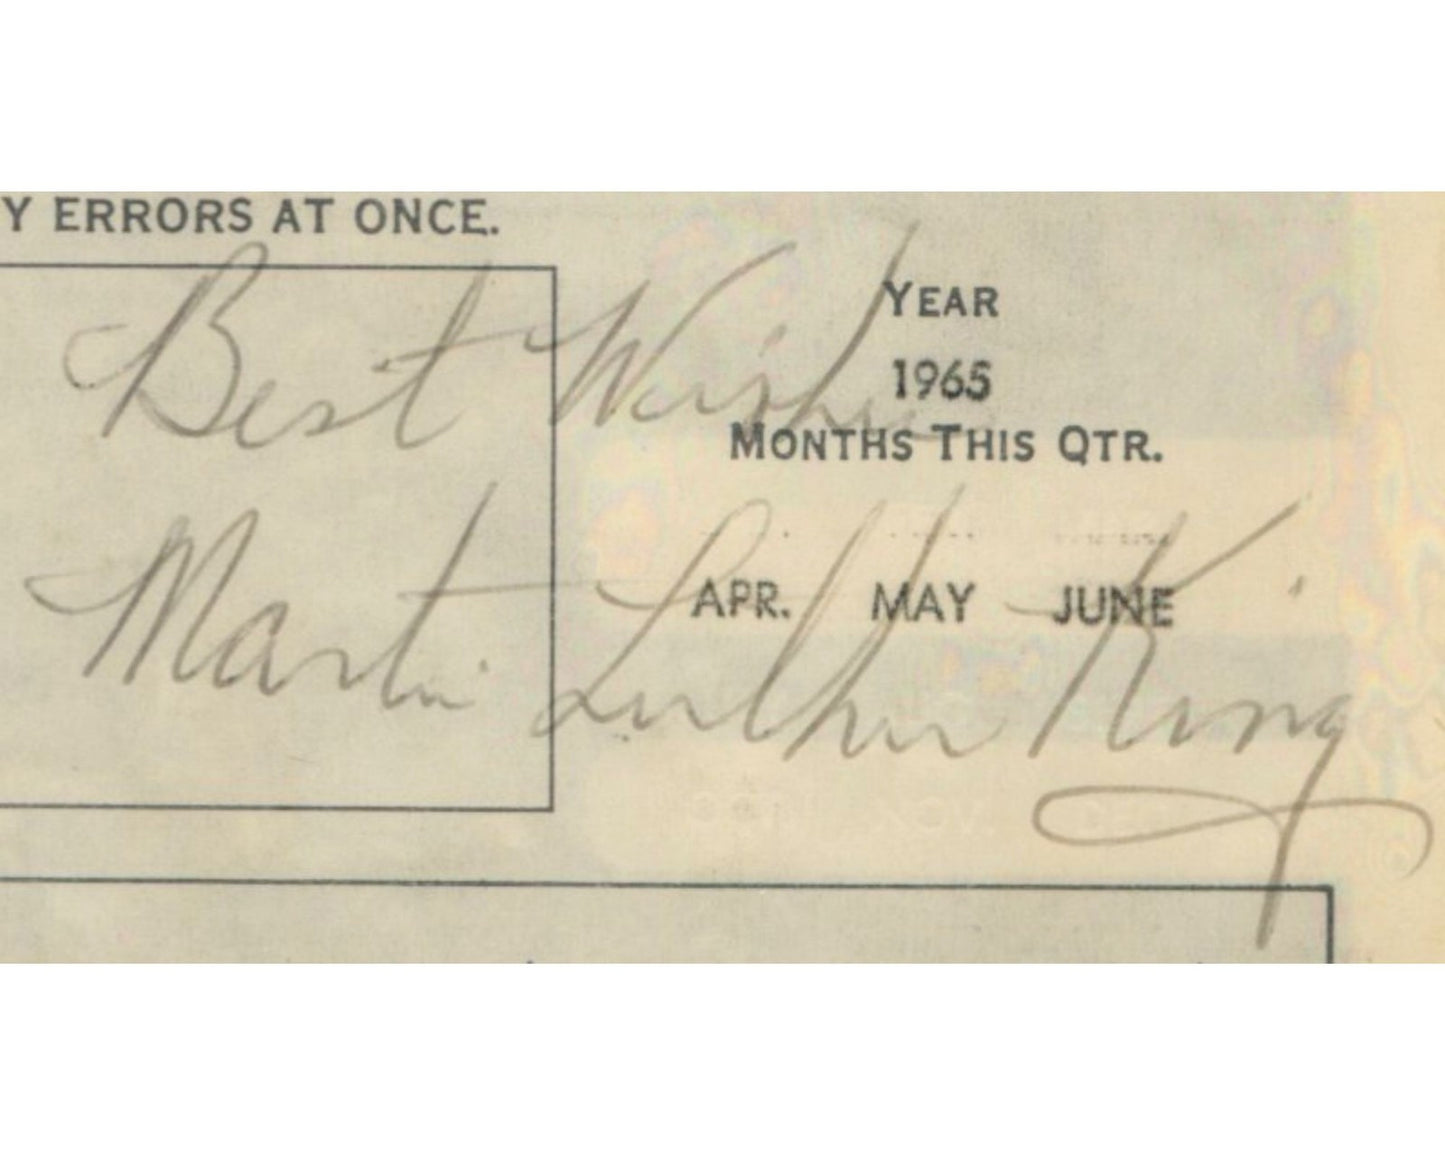 Y ERRORS AT ONCE.
Best Wishes
YEAR
1965
MONTHS THIS QTR.
APR. MAY JUNE
Martin Luther King
NOV.